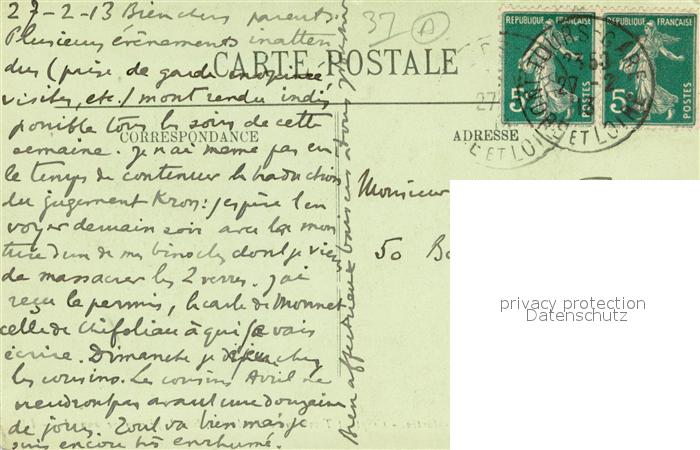 27-2-13 Bien chers parents.
Plusieurs évènements inatten
dus (prise de garde
visites, etc.) m'ont rendu indis
ponible tous les soirs de cette
semaine. Je n'ai même pas eu
le temps de continuer la traduction
du jugement Kron : j'espère l'en
voyer demain soir avec la mon
ture d'un de mes binocles dont je viens
de massacrer les 2 verres. J'ai
reçu le permis, la carte de Monnet
celle de Chifoliau à qui je vais
écrire. Dimanche je chez
les cousins. Les cousins Avril ne
viendront pas avant une douzaine
de jours. Tout va bien mais je
suis encore très enrhumé.
Bien affectueux baisers à tous
37 A
CARTE POSTALE
CORRESPONDANCE
ADRESSE
Monsieur
50 Bo
REPUBLIQUE FRANÇAISE
5c
POSTES
REPUBLIQUE FRANÇAISE
5c
POSTES
TOURS-GARE
27-2
INDRE ET LOIRE
27
E ET LOIRE
privacy protection
Datenschutz